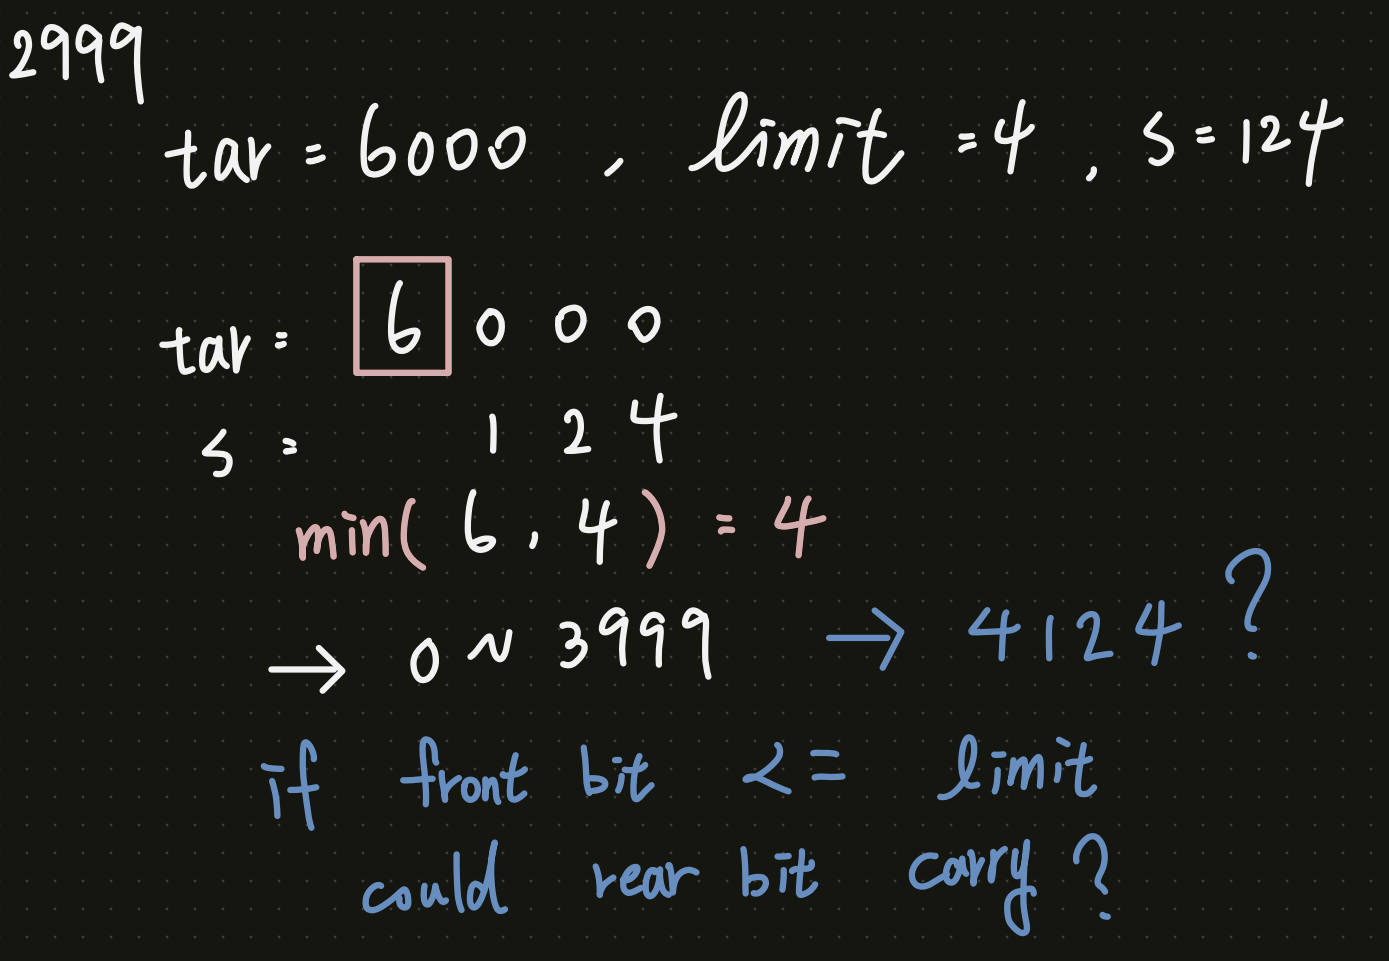 2999
tar = 6000 , limit = 4 , s = 124
tar = 6 0 0 0
s = 1 2 4
min( 6 , 4 ) = 4
→ 0 ~ 3999 → 4124 ?
if front bit <= limit
could rear bit carry ?